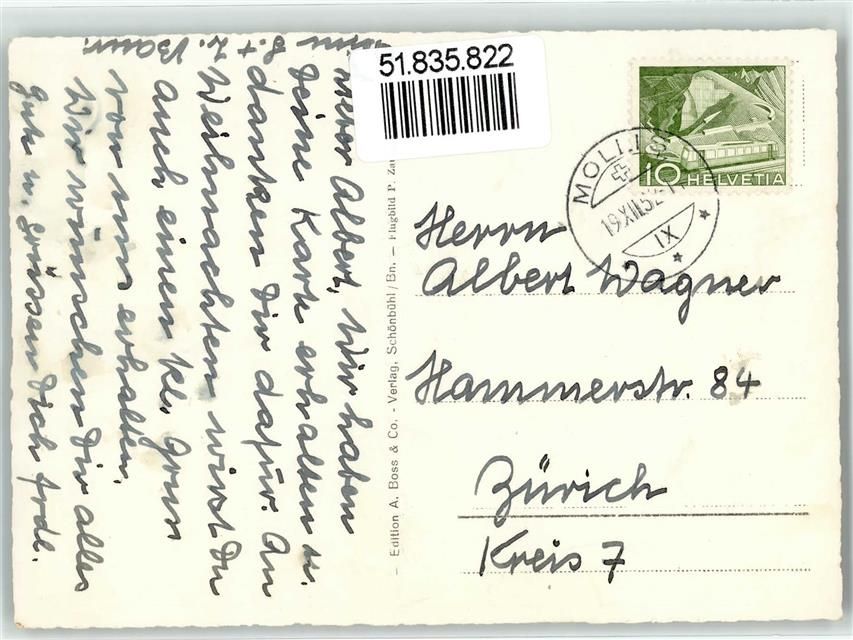 51.835.822
HELVETIA
10
MOLLIS
19.XII.52
IX
Herrn
Albert Wagner
Hammerstr. 84
Zürich
Kreis 7
– Edition A. Boss & Co. - Verlag, Schönbühl/Bn. – Flugbild P. Za
Lieber Albert, Wir haben
Deine Karte erhalten u.
danken Dir dafür. An
Weihnachten wirst Du
auch einen kl. Gruss
von uns erhalten.
Wir wünschen Dir alles
Gute u. grüssen Dich frdl.
S. + L. Baur.